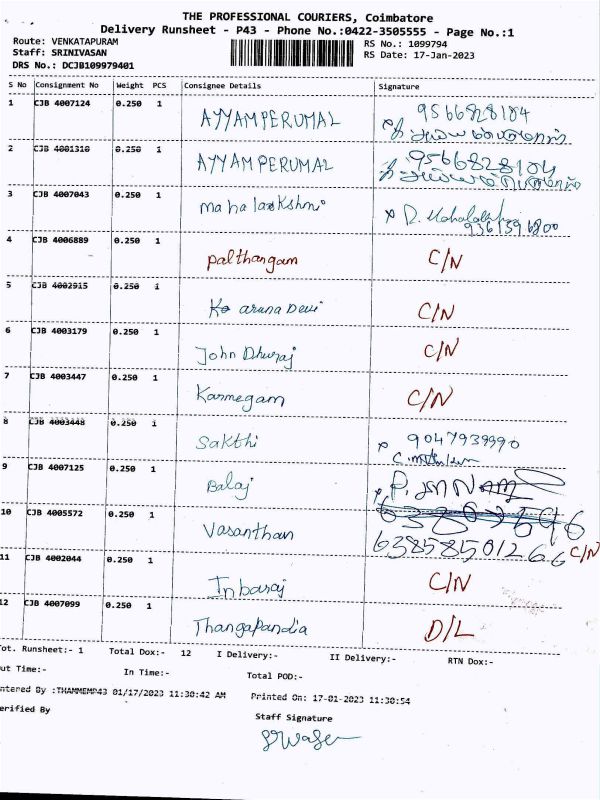 THE PROFESSIONAL COURIERS, Coimbatore
Delivery Runsheet - P43 - Phone No.:0422-3505555 - Page No.:1
Route: VENKATAPURAM
Staff: SRINIVASAN
DRS No.: DCJB109979401
RS No.: 1099794
RS Date: 17-Jan-2023
S No Consignment No Weight PCS Consignee Details Signature
1 CJB 4007124 0.250 1 AYYAMPERUMAL 9566828104
2 CJB 4001310 0.250 1 AYYAMPERUMAL 9566828104
3 CJB 4007043 0.250 1 mahalaakshmi
4 CJB 4006889 0.250 1 palthangam C/N
5 CJB 4002915 0.250 1 aruna Devi C/N
6 CJB 4003179 0.250 1 John Dhuraj C/N
7 CJB 4003447 0.250 1 Karmegam C/N
8 CJB 4003448 0.250 1 Sakthi 9047939990
9 CJB 4007125 0.250 1 Balaj
10 CJB 4005572 0.250 1 Vasanthan C/N
11 CJB 4002044 0.250 1 Inbaraj C/N
12 CJB 4007099 0.250 1 Thangapandia D/L
Tot. Runsheet:- 1 Total Dox:- 12 I Delivery:- II Delivery:- RTN Dox:-
out Time:- In Time:- Total POD:-
ntered By :THAMMEMP43 01/17/2023 11:30:42 AM Printed On: 17-01-2023 11:30:54
erified By
Staff Signature